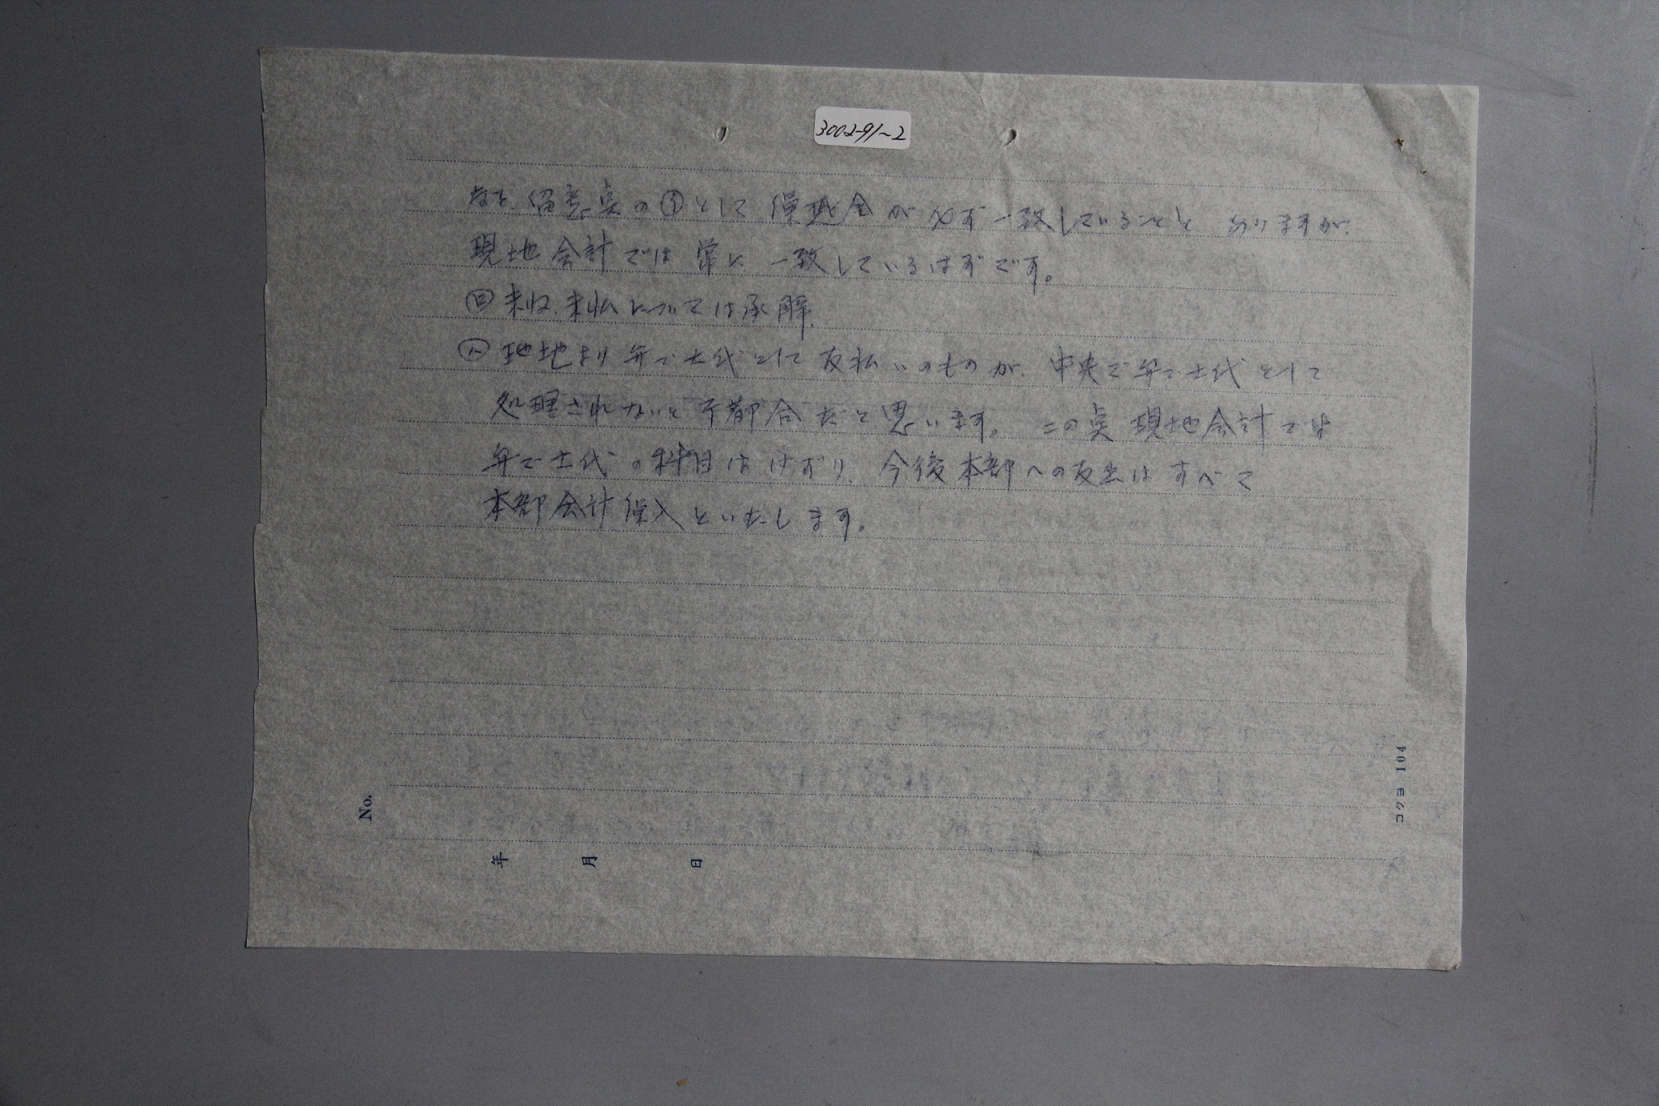 3002-91-2
なお、留意点の①として 繰越金が必ず一致していること とありますが、
現地会計では 常に 一致しているはずです。
㋺ 未収、未払については承解、
㋩ 地より弁で士代として 支払いのものが、中央で弁で士代として
処理されないと不都合だと思います。この点 現地会計では
弁で士代の科目は けずり、今後本部への支出は すべて
本部会計繰入といたします。
No.
年 月 日
コクヨ 104